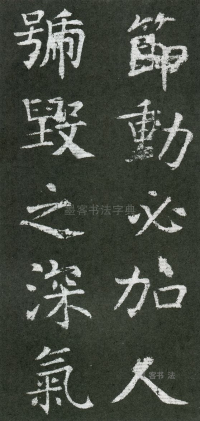 節動必加人
號毀之深氣
墨客书法字典
客书 法